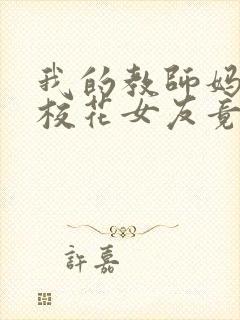 我的教師媽
校花女友竟
許嘉